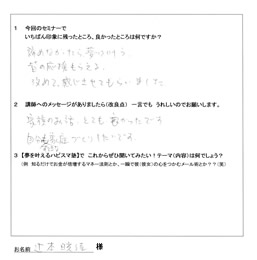 1 今回のセミナーで
いちばん印象に残ったところ、良かったところは何ですか?
諦めなかったら
の応援もらえる
改めて、感じさせてもらいました
2 講師へのメッセージがありましたら(改良点) 一言でも うれしいのでお願いします。
家族のお話 とても 良かったです
です。
3 【夢を叶えるハピスマ塾】で これからぜひ聞いてみたい!テーマ(内容)は何でしょう?
(例 知るだけでお金が倍増するマネー法則とか、一瞬で彼(彼女)の心をつかむメール術とか??(笑)
お名前 辻本 様